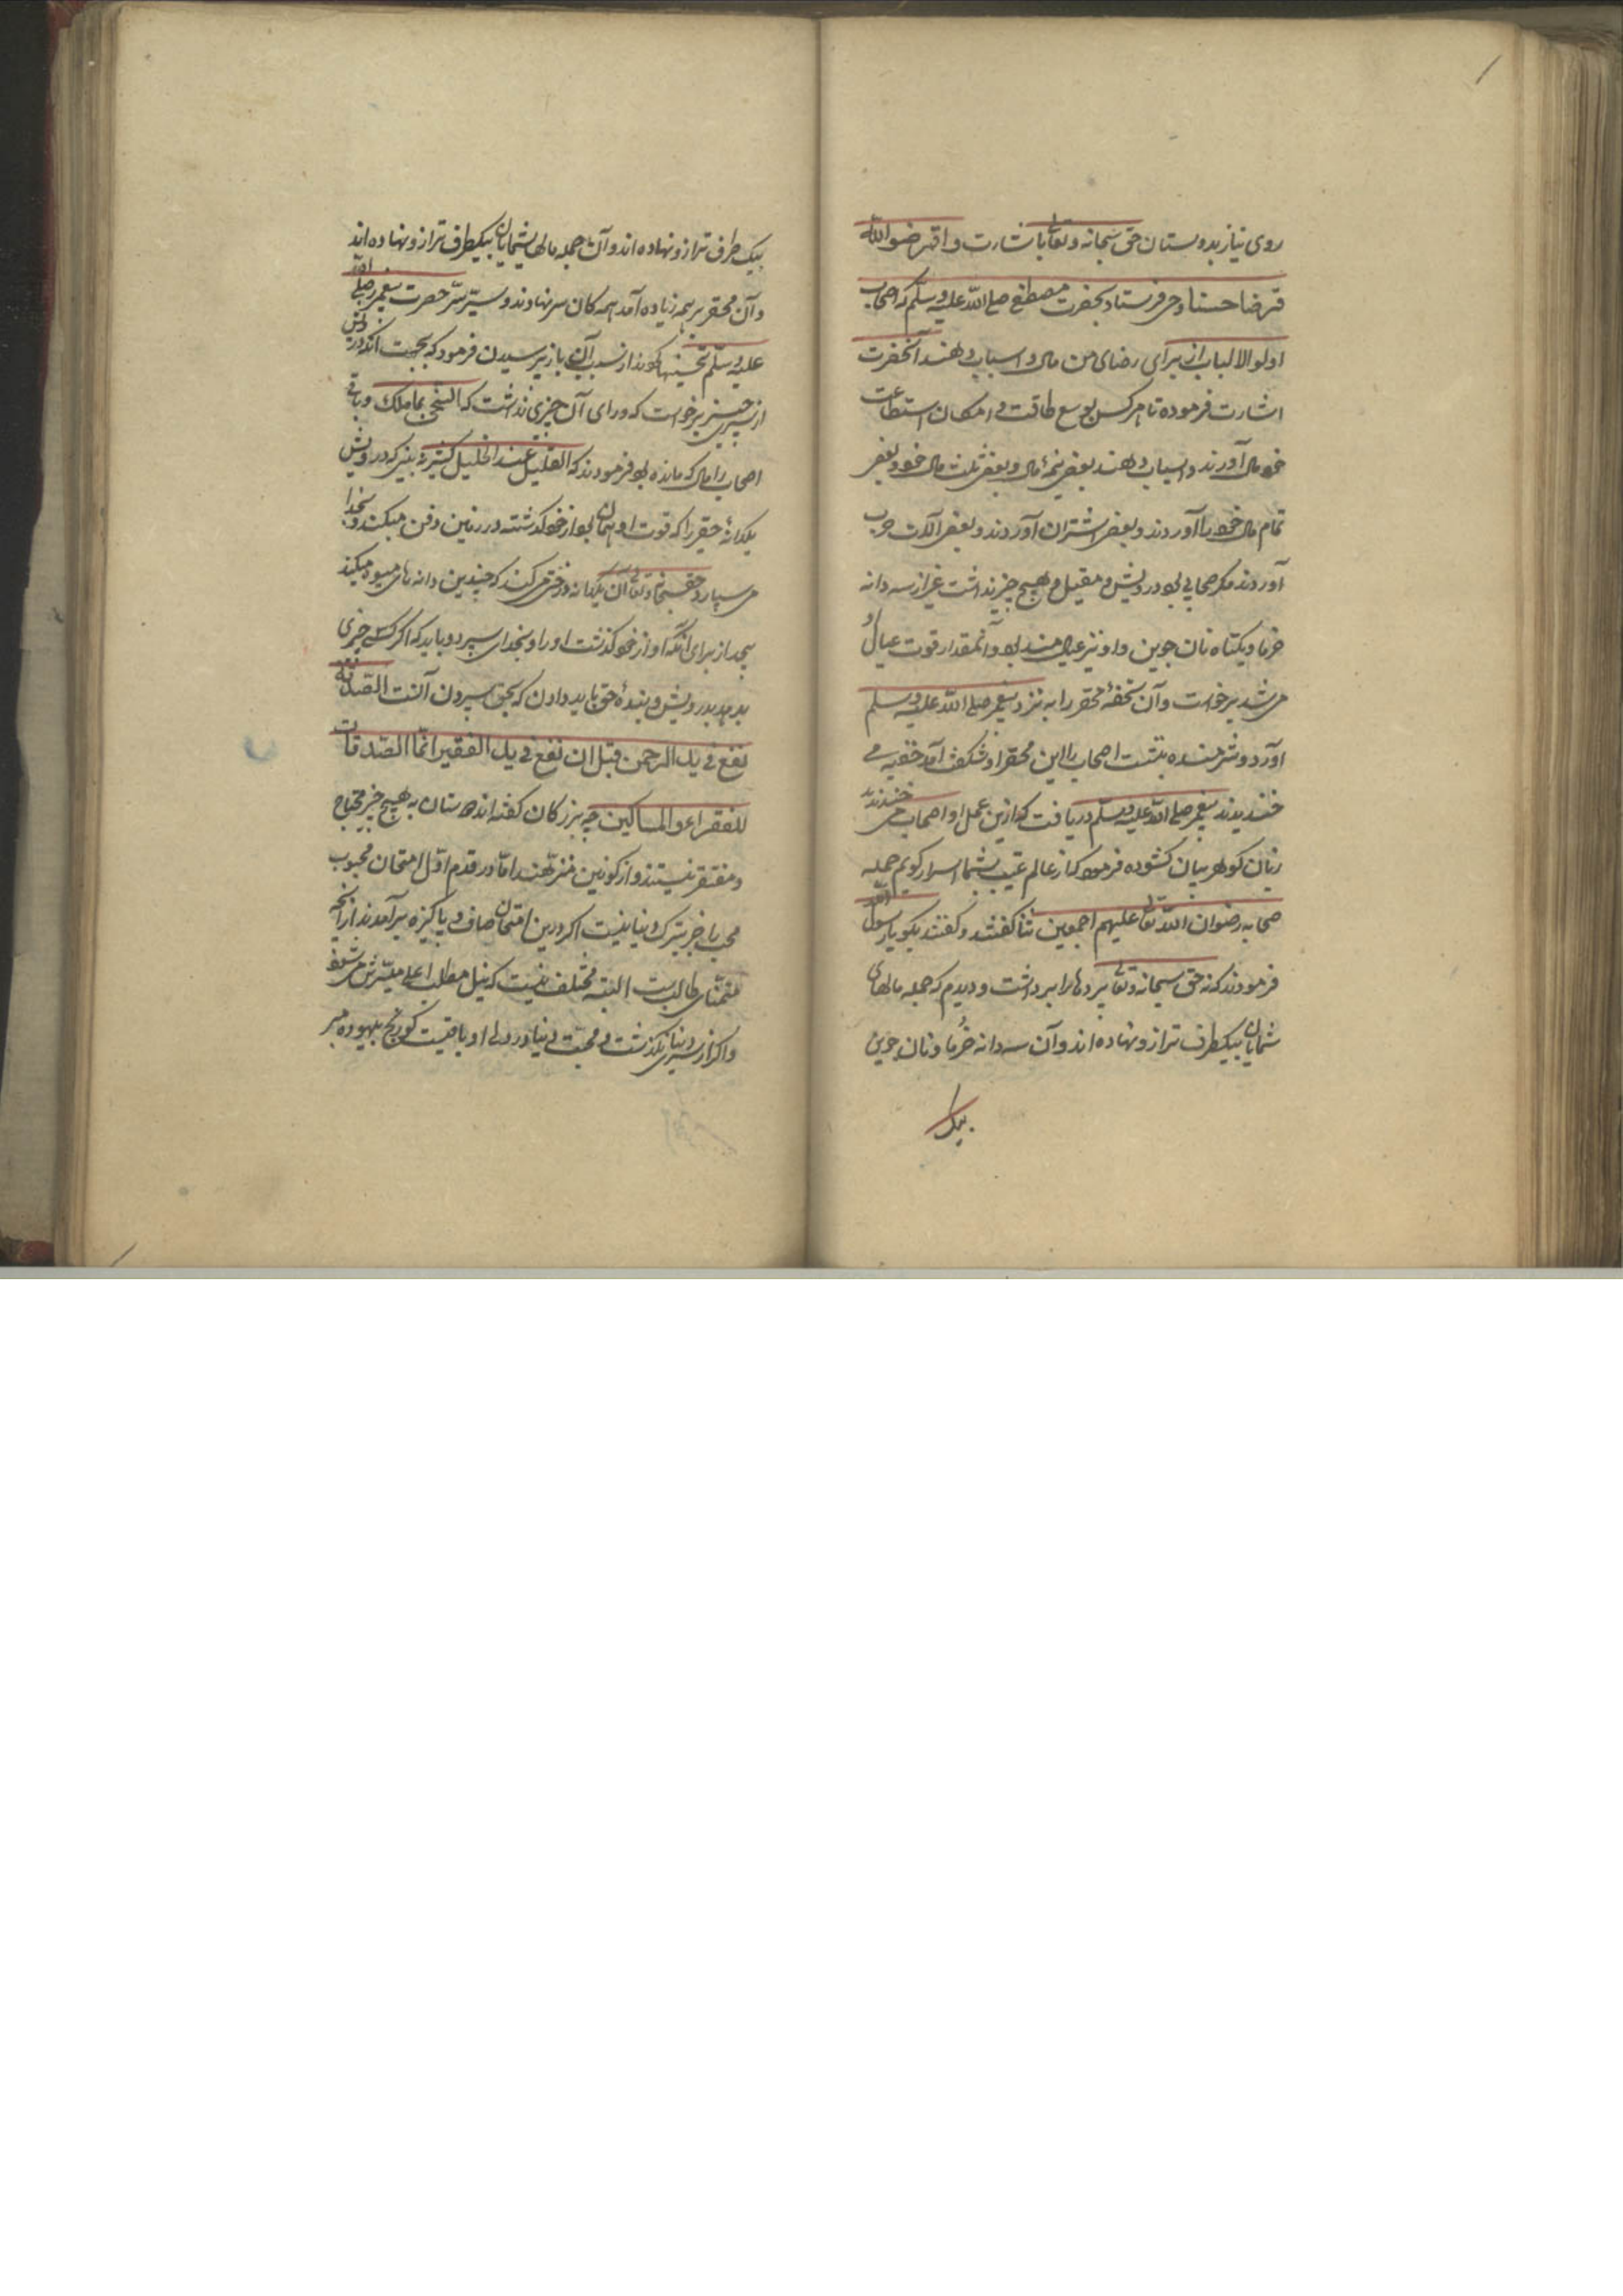 روی نیاز بدوستان حق سبحانه و تعالی باشارت و اقرضوا الله
قرضا حسنا وحی فرستاد بحضرت مصطفی صلی الله علیه وسلم که اصحاب
اولو الالباب از برای رضای من مال و اسباب دهند آنحضرت
اشارت فرموده تا هرکس بوسع طاقت و امکان استطاعت
خود مال آورند و اسباب دهند بعضی نیمهٔ مال و بعضی ثلث مال خود و بعضی
تمام مال خود را آوردند و بعضی اشتران آوردند و بعضی آلات حرب
آوردند مکر صحابی بود درویش و مقیل و هیچ چیز نداشت غیر از سه دانه
خرما و یکتاه نان جوین و او نیز عیال مند بود و آنمقدار قوت عیال او
می شد برخواست و آن تحفهٔ محقر را به نزد پیغمبر صلی الله علیه وسلم
آورد و شرمنده بنشست اصحاب را این محقر او شکفت آمد خفیه می
خندیدند پیغمبر صلی الله علیه وسلم دریافت که ازین عمل او اصحاب می خندند
زبان کوهر بیان کشوده فرمود که از عالم غیب بشما اسرار کویم جمله
صحابه رضوان الله تعالی علیهم اجمعین ثنا کفتند و کفتند بکو یا رسول الله
فرمودند که حق سبحانه و تعالی پردها را برداشت و دیدم که جمله مالهای
شمایان بیکطرف ترازو نهاده اند و آن سه دانه خرما و نان جوین
بیک
بیک طرف ترازو نهاده اند و آن جمله مالها شمایان بیکطرف ترازو نهاده اند
و آن محقر بر همه زیاده آمد همه کان سر نهادند و سر حضرت پیغمبر صلی الله
علیه وسلم تحسینها کردند از سبب آن باز پرسیدن فرمود که بجهت آنکه درویش
از سر چیز برخواست که ورای آن چیزی نداشت که السخی بما ملک و باقی
اصحاب را مال که مانده بود فرمودند که القلیل عند الخلیل کثیر نه بینی که درویش
یکدانهٔ حقیر را که قوت او همان بود از خود کذشته در زمین دفن میکند و بخدا
می سپارد حق سبحانه و تعالی آن یکدانه درختی میکند که چندین دانه های میوه میکند
بیحد از برای آنکه او از خود کذشت او را و بخدای سپرد و باید که اکر کسی چیزی
بدهد بدرویش و بندهٔ حق باید دادن که بحق سپردن آنست الصدقة
تقع فی ید الرحمن قبل ان تقع فی ید الفقیر انما الصدقات
للفقراء و المساکین چه بزرکان کفته اند دوستان به هیچ چیز محتاج
و مفتقر نیستند و از کونین منزهند اما در قدم اول امتحان محبوب
محب را خبر بترک دنیا نیست اکر درین امتحان صاف و پاکیزه برآمدند از آنچه
متمنای طالب ست البته مختلف نیست که نیل مطلب اعلی میسرش می شود
و اکر از سر دنیا نکذشت و محبت دنیا در دل او باقیست کو رنج بیهوده مبر